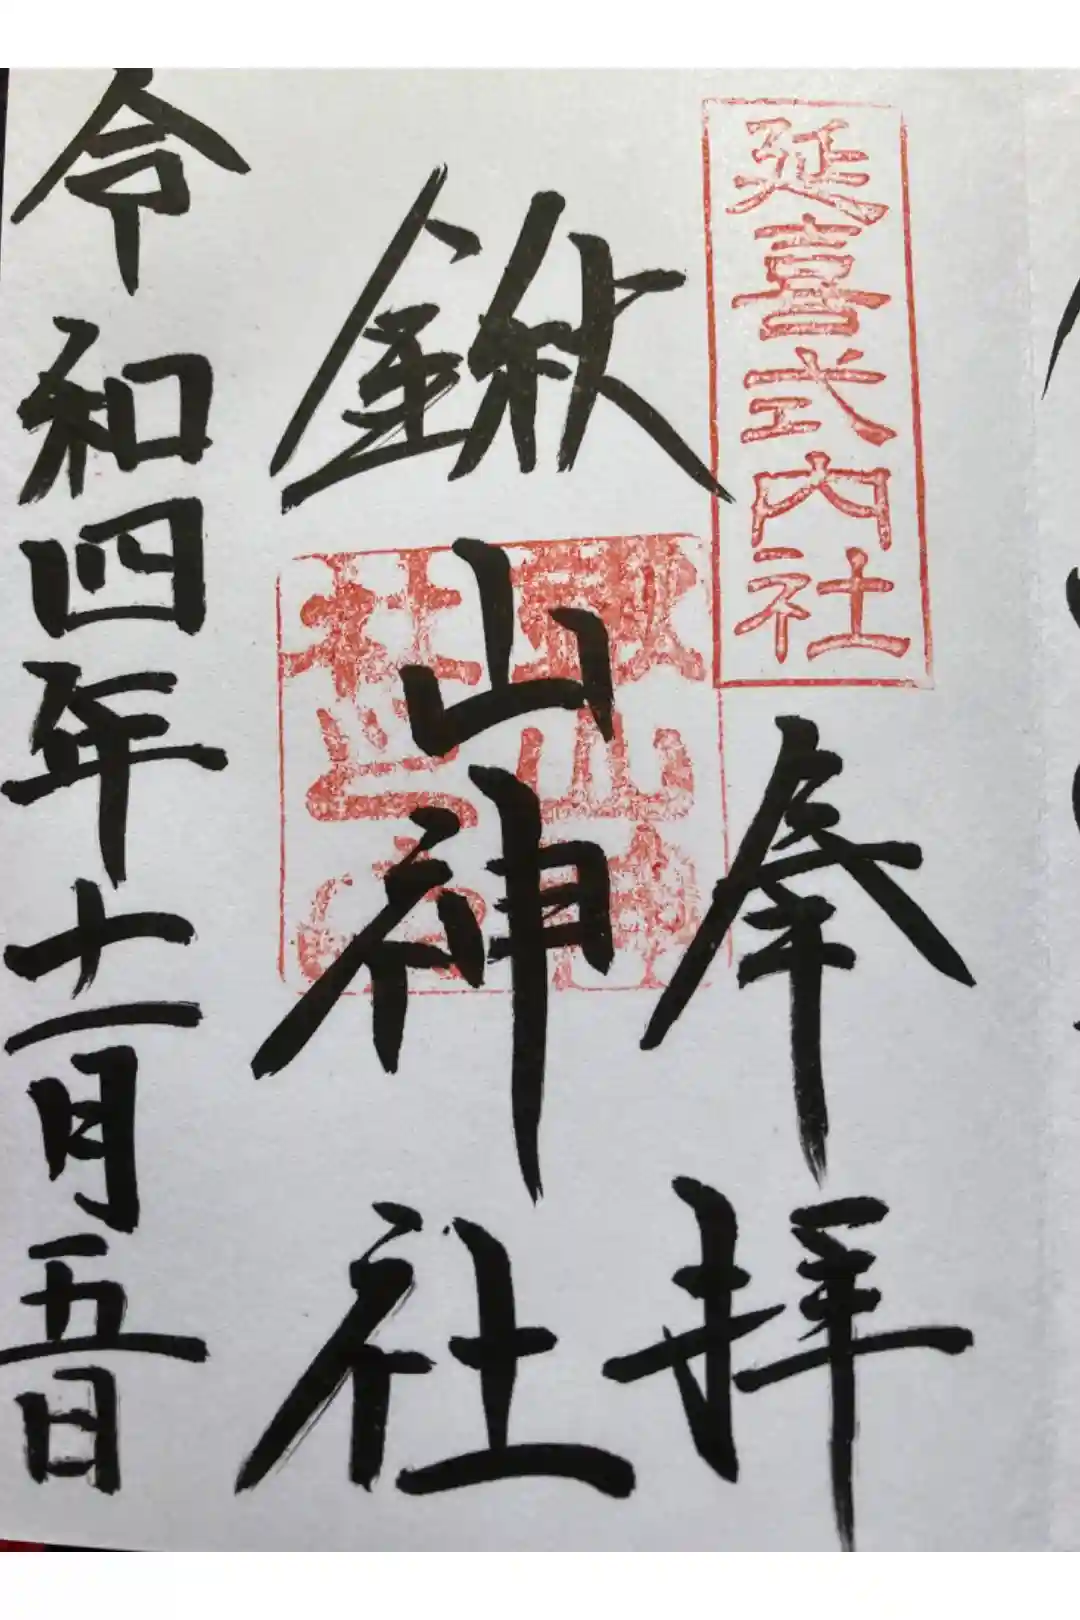 延喜式内社
奉拝
鍬山神社
令和四年十一月五日